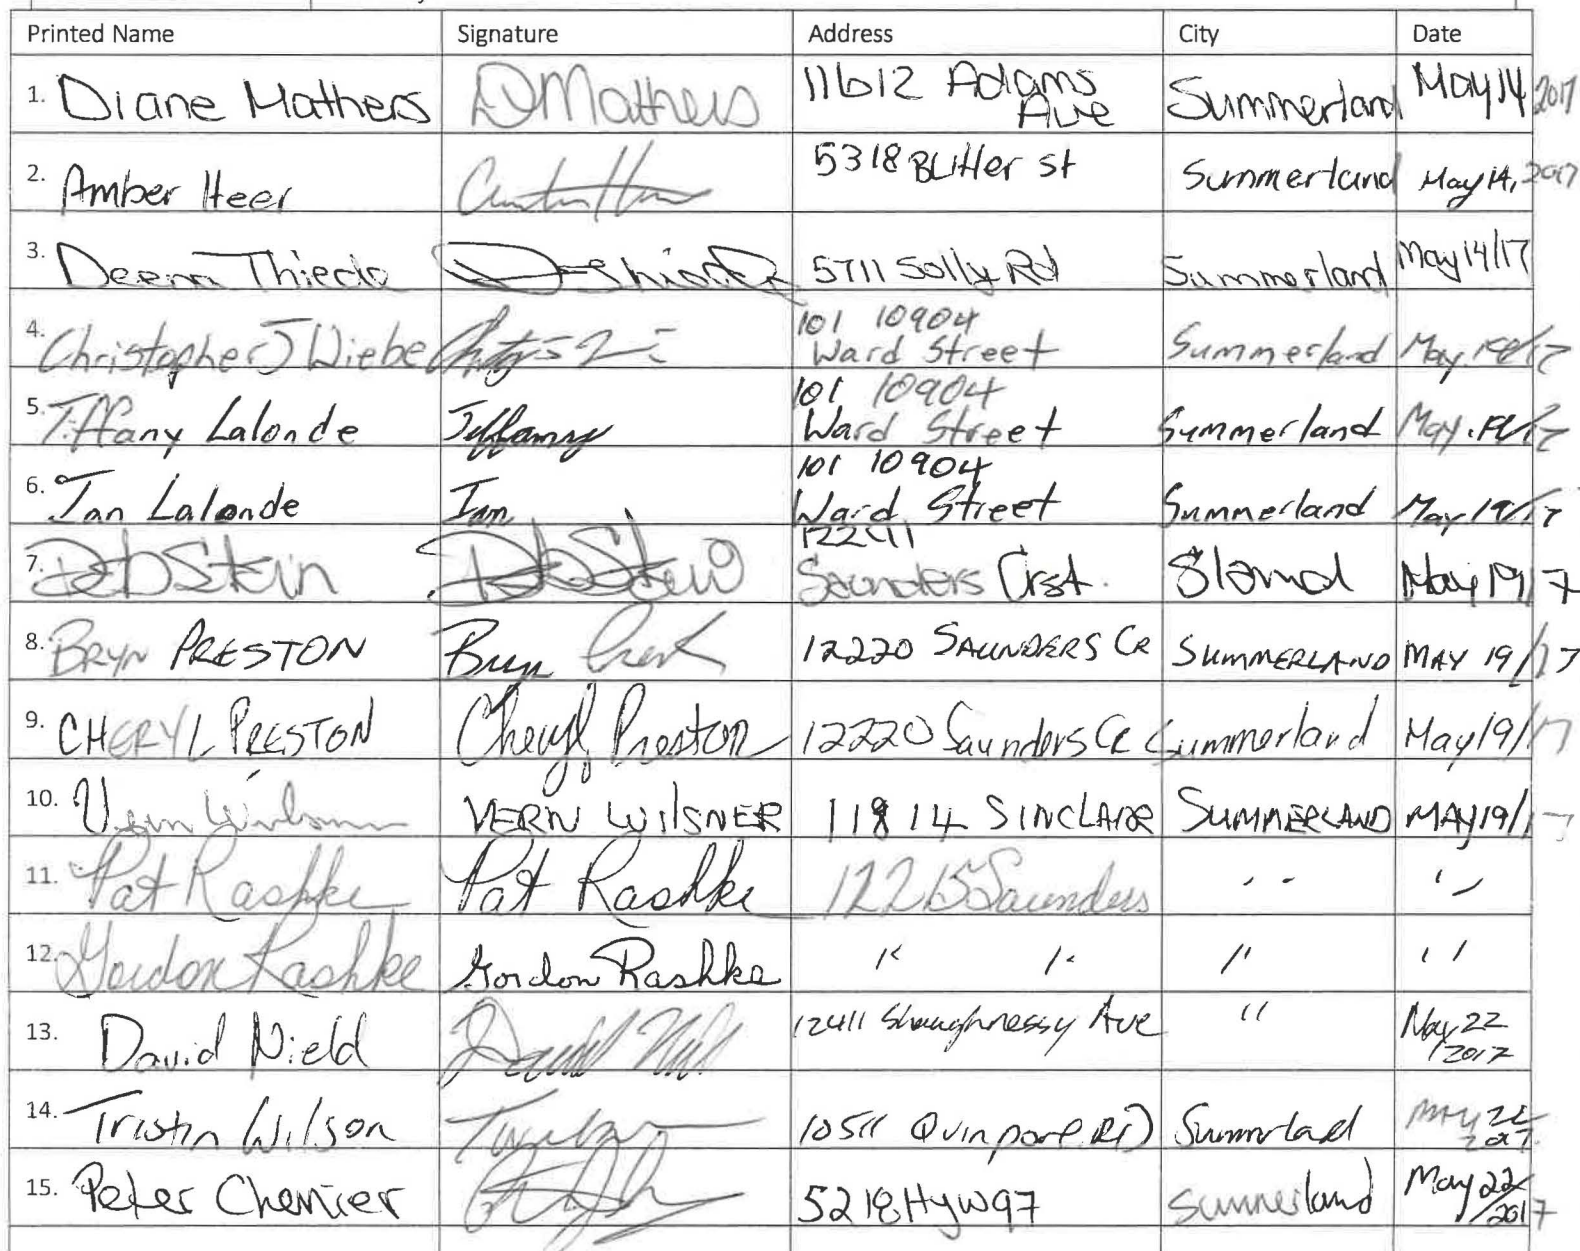 Printed Name Signature Address City Date
1. Diane Mathers DMathers 11612 Adams Ave Summerland May 14 2017
2. Amber Heer 5318 Butler st Summerland May 14, 2017
3. Deena Thiede 5711 Solly Rd Summerland May 14/17
4. Christopher J Wiebe 101 10904 Ward Street Summerland May
5. Tiffany Lalonde Tiffany 101 10904 Ward Street Summerland May
6. Ian Lalonde Ian 101 10904 Ward Street Summerland May 19/17
7. Deb Stein Deb Stein 12241 Saunders Crst. Sland May 19/17
8. BRYN PRESTON Bryn 12220 SAUNDERS CR SUMMERLAND MAY 19/17
9. CHERYL PRESTON Cheryl Preston 12220 Saunders Cr Summerland May 19/17
10. Vern VERN WILSNER 11814 SINCLAIR SUMMERLAND MAY 19/17
11. Pat Rashke Pat Rashke 12215 Saunders " "
12. Gordon Rashke Gordon Rashke " " " "
13. David Nield David 12411 Shaughnessy Ave " May 22 /2017
14. Tristin Wilson 10511 Quinpool RD May 22 2017
15. Peter Chenier 5218 Hyw 97 Summerland May 22/2017